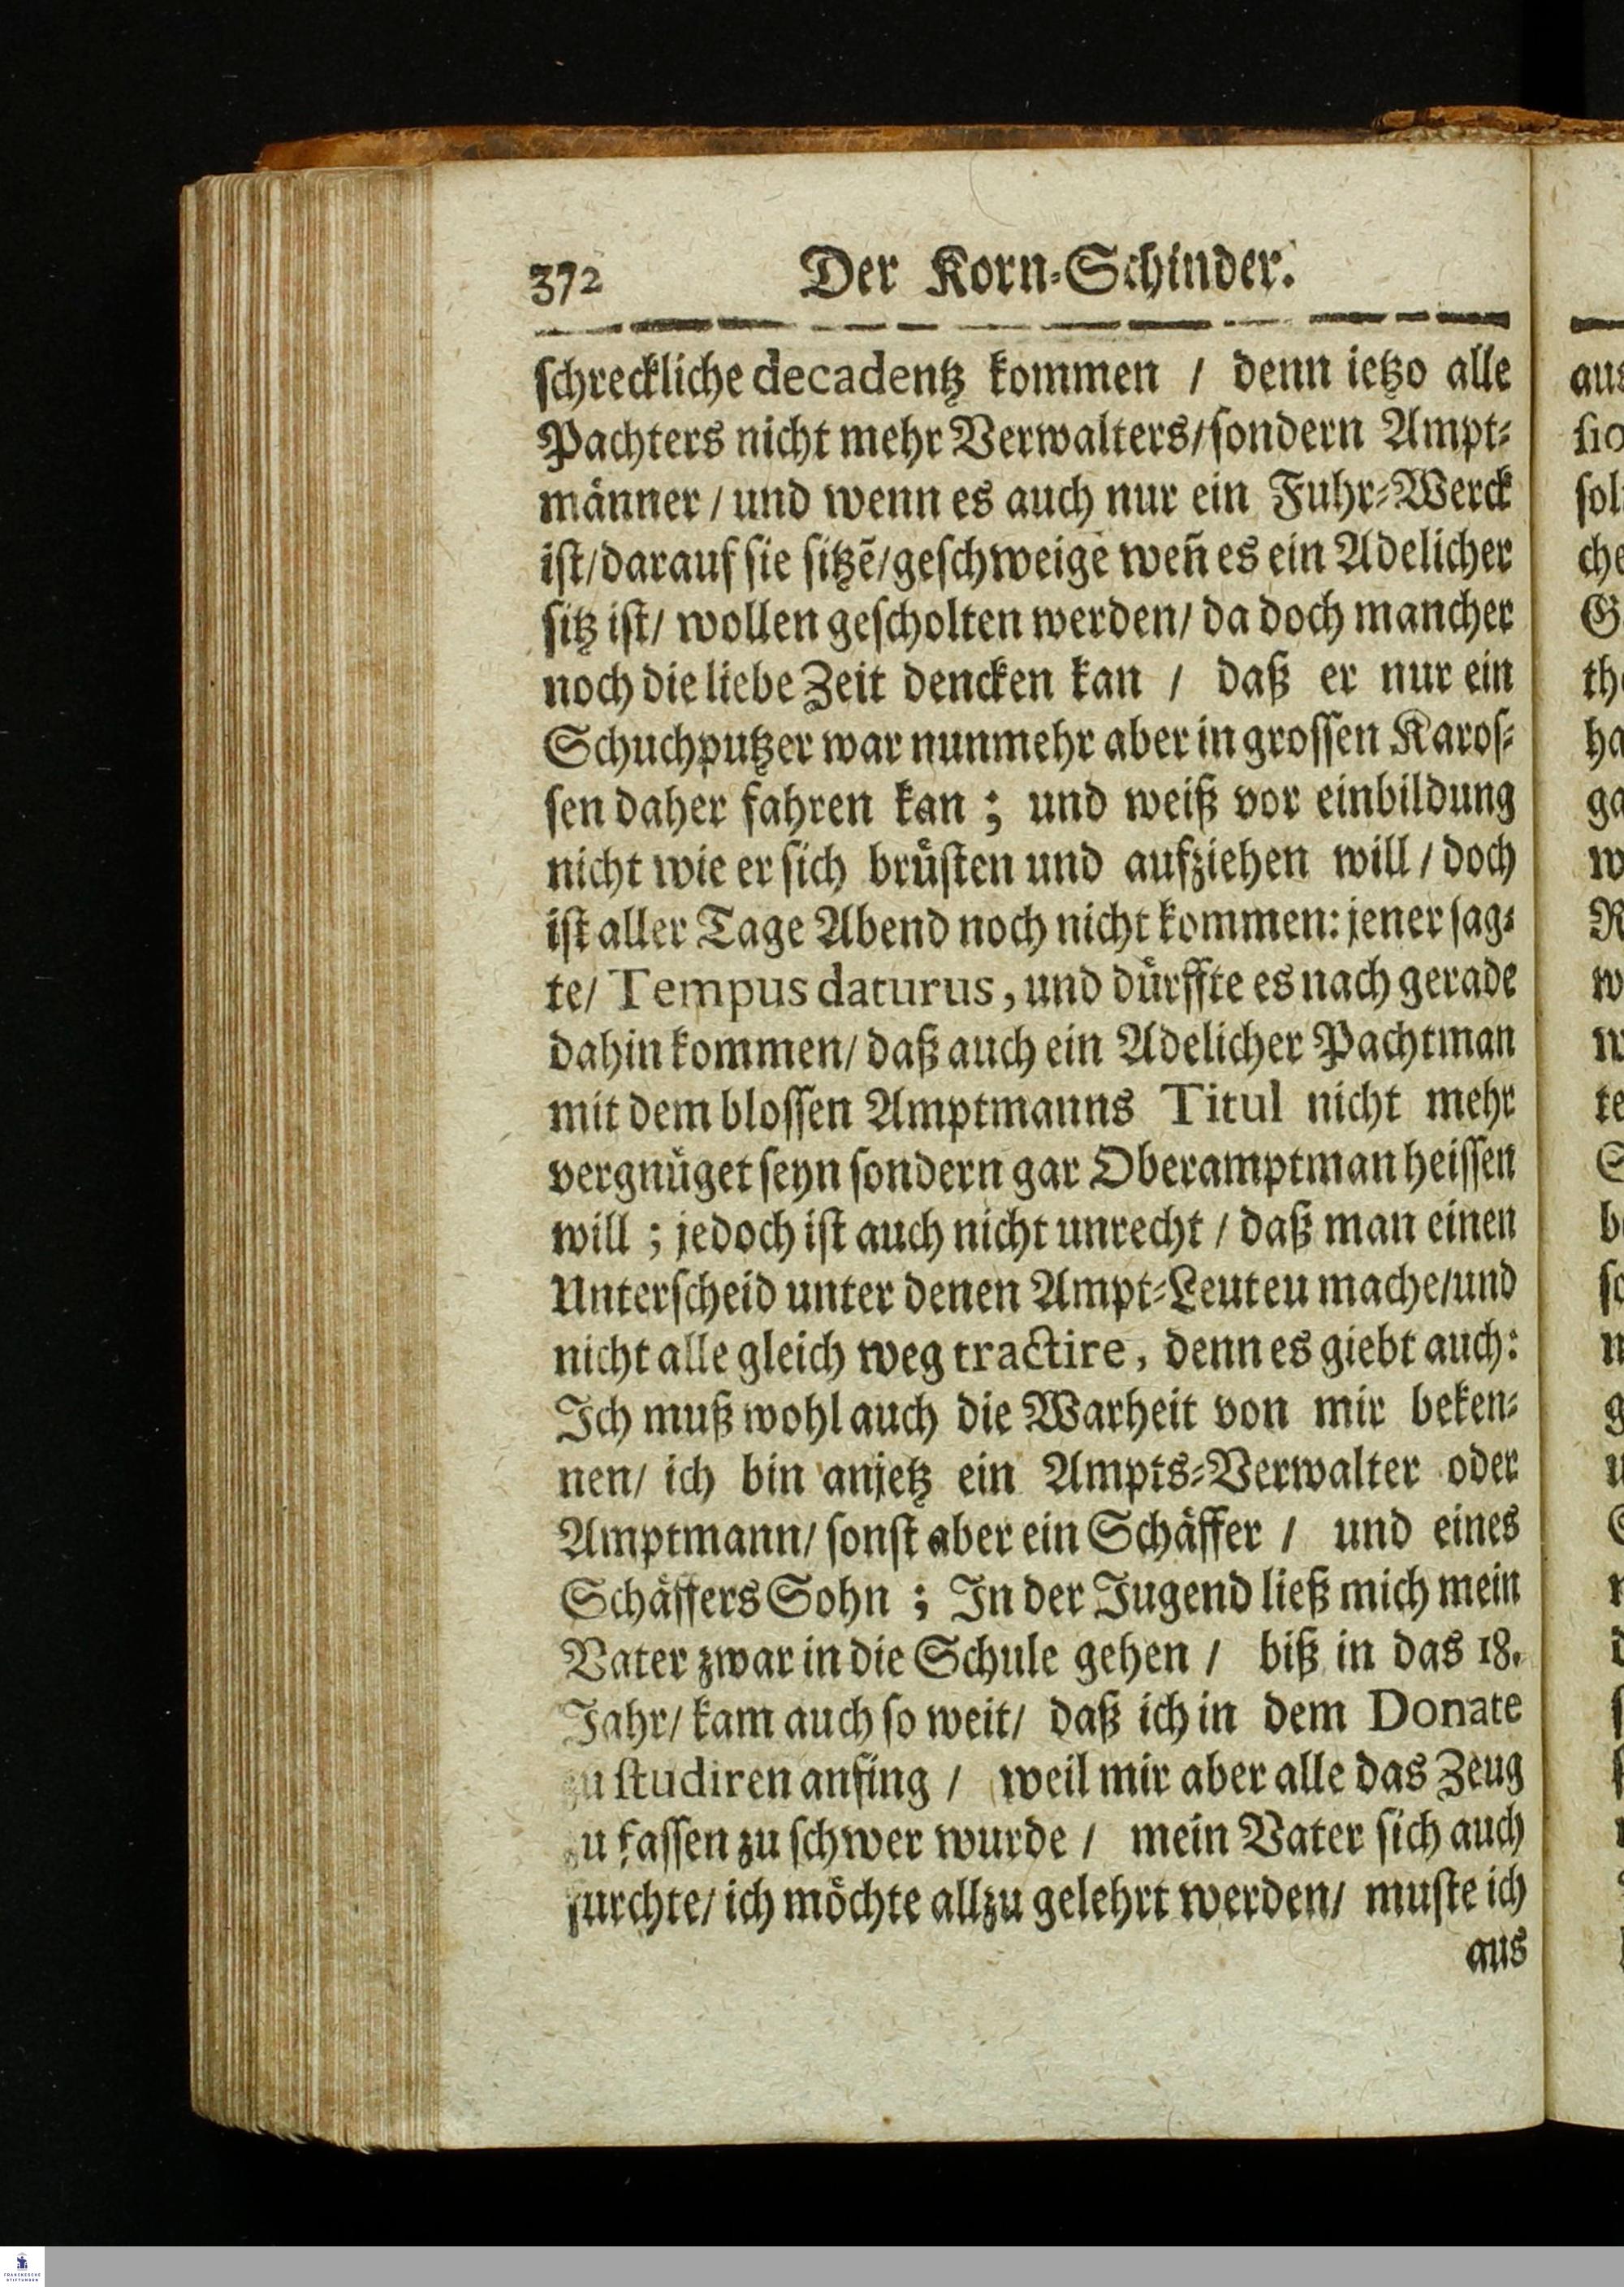 372 Der Korn-Schinder.
schreckliche decadentz kommen / denn ietzo alle
Pachters nicht mehr Verwalters/sondern Ampt-
männer / und wenn es auch nur ein Fuhr-Werck
ist/darauf sie sitzẽ/geschweige weñ es ein Adelicher
sitz ist/ wollen gescholten werden/ da doch mancher
noch die liebe Zeit dencken kan / daß er nur ein
Schuchputzer war nunmehr aber in grossen Karos-
sen daher fahren kan ; und weiß vor einbildung
nicht wie er sich brüsten und aufziehen will / doch
ist aller Tage Abend noch nicht kommen: jener sag-
te/ Tempus daturus, und dürffte es nach gerade
dahin kommen/ daß auch ein Adelicher Pachtman
mit dem blossen Amptmanns Titul nicht mehr
vergnüget seyn sondern gar Oberamptman heissen
will ; jedoch ist auch nicht unrecht / daß man einen
Unterscheid unter denen Ampt-Leuteu mache/und
nicht alle gleich weg tractire, denn es giebt auch:
Ich muß wohl auch die Warheit von mir beken-
nen/ ich bin anjetz ein Ampts-Verwalter oder
Amptmann/ sonst aber ein Schäffer / und eines
Schäffers Sohn ; In der Jugend ließ mich mein
Vater zwar in die Schule gehen / biß in das 18.
Jahr/ kam auch so weit/ daß ich in dem Donate
zu studiren anfing / weil mir aber alle das Zeug
zu fassen zu schwer wurde / mein Vater sich auch
furchte/ ich möchte allzu gelehrt werden/ muste ich
aus
FRANCKESCHE
STIFTUNGEN